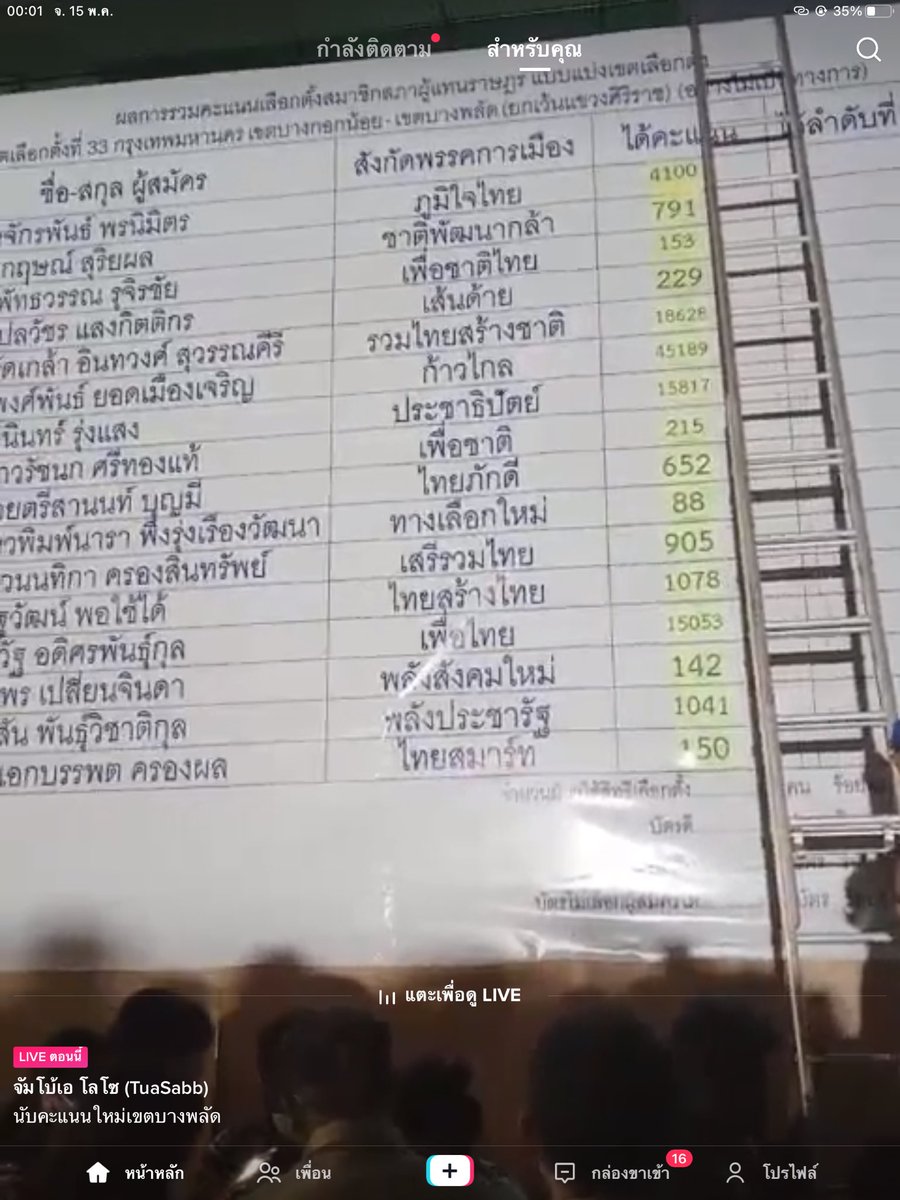 00:01 จ. 15 พ.ค.
35%
กำลังติดตาม สำหรับคุณ
ผลการรวมคะแนนเลือกตั้งสมาชิกสภาผู้แทนราษฎร แบบแบ่งเขตเลือกตั้ง
ตเลือกตั้งที่ 33 กรุงเทพมหานคร เขตบางกอกน้อย - เขตบางพลัด (ยกเว้นแขวงศิริราช) (อย่างไม่เป็นทางการ)
ชื่อ-สกุล ผู้สมัคร สังกัดพรรคการเมือง ได้คะแนน ได้ลำดับที่
จักรพันธ์ พรนิมิตร ภูมิใจไทย 4100
กฤษณ์ สุริยผล ชาติพัฒนากล้า 791
พัทธวรรณ รุจิรชัย เพื่อชาติไทย 153
ปลวัชร แสงกิตติกร เส้นด้าย 229
ดเกล้า อินทวงศ์ สุวรรณคีรี รวมไทยสร้างชาติ 18628
พงศ์พันธ์ ยอดเมืองเจริญ ก้าวไกล 45189
นินทร์ รุ่งแสง ประชาธิปัตย์ 15817
าวรัชนก ศรีทองแท้ เพื่อชาติ 215
ยตรีสานนท์ บุญมี ไทยภักดี 652
วพิมพ์นารา พึ่งรุ่งเรืองวัฒนา ทางเลือกใหม่ 88
วนนทิกา ครองสินทรัพย์ เสรีรวมไทย 905
ฐวัฒน์ พอใช้ได้ ไทยสร้างไทย 1078
วัฐ อดิศรพันธุ์กุล เพื่อไทย 15053
พร เปลี่ยนจินดา พลังสังคมใหม่ 142
สัน พันธุ์วิชาติกุล พลังประชารัฐ 1041
เอกบรรพต ครองผล ไทยสมาร์ท 150
คน
บัตรดี
แตะเพื่อดู LIVE
LIVE ตอนนี้
จัมโบ้เอ โลโซ (TuaSabb)
นับคะแนนใหม่เขตบางพลัด
หน้าหลัก เพื่อน กล่องขาเข้า 16 โปรไฟล์